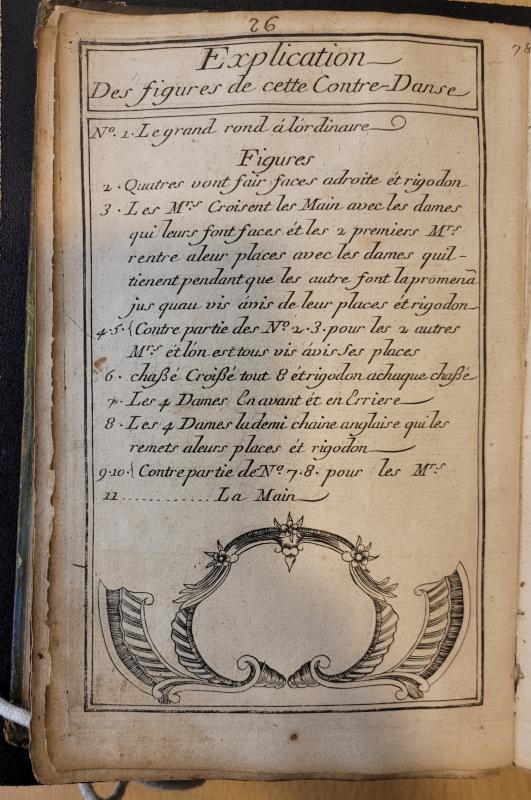 26
78
Explication
Des figures de cette Contre-Danse
Nº. 1. Le grand rond á lórdinaire
Figures
2 . Quatres vont fair faces adroite ét rigodon
3 . Les Mrs Croisent les Main avec les dames
qui leurs font faces ét les 2 premiers Mrs
rentre aleur places avec les dames quil-
tienent pendant que les autre font la promenã
jus quau vis ávis de leur places ét rigodon
4.5.{Contre partie des Nº 2.3. pour les 2 autres
Mrs ét lón est tous vis ávis ses places
6 . chaßé Croißé tout 8 ét rigodon a chaque chaßé
7 . Les 4 Dames En avant ét en Erriere
8 . Les 4 Dames la demi chaine anglaise qui les
remets aleurs places ét rigodon
9.10.{Contre partie de Nº 7.8. pour les Mrs
11 ............ La Main